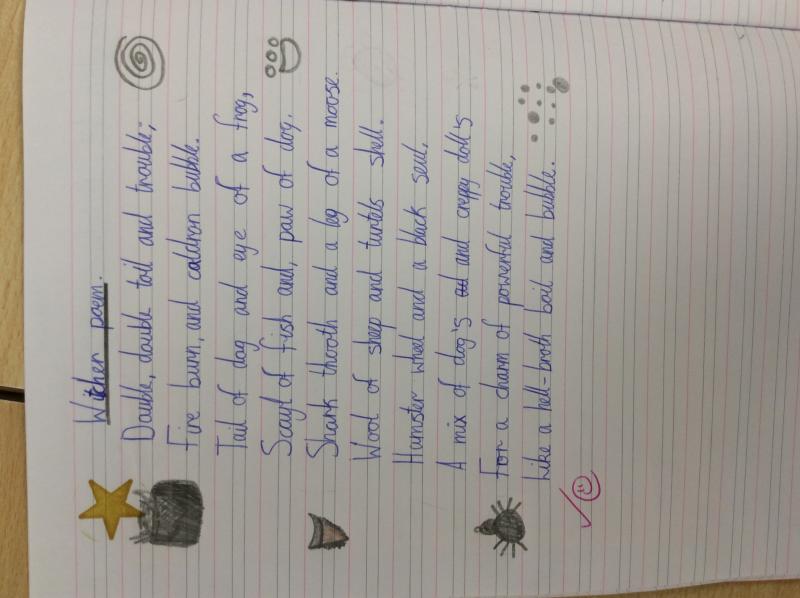 Witches poem.
Double, double toil and trouble;
Fire burn, and caldron bubble.
Tail of dog and eye of a frog,
Scayl of fish and, paw of dog.
Shark thooth and a leg of a moose.
Wool of sheep and turtels shell.
Hamster wheel and a black seul.
A mix of dog's and creppy doll's
For a charm of powerful trouble,
Like a hell-broth boil and bubble.